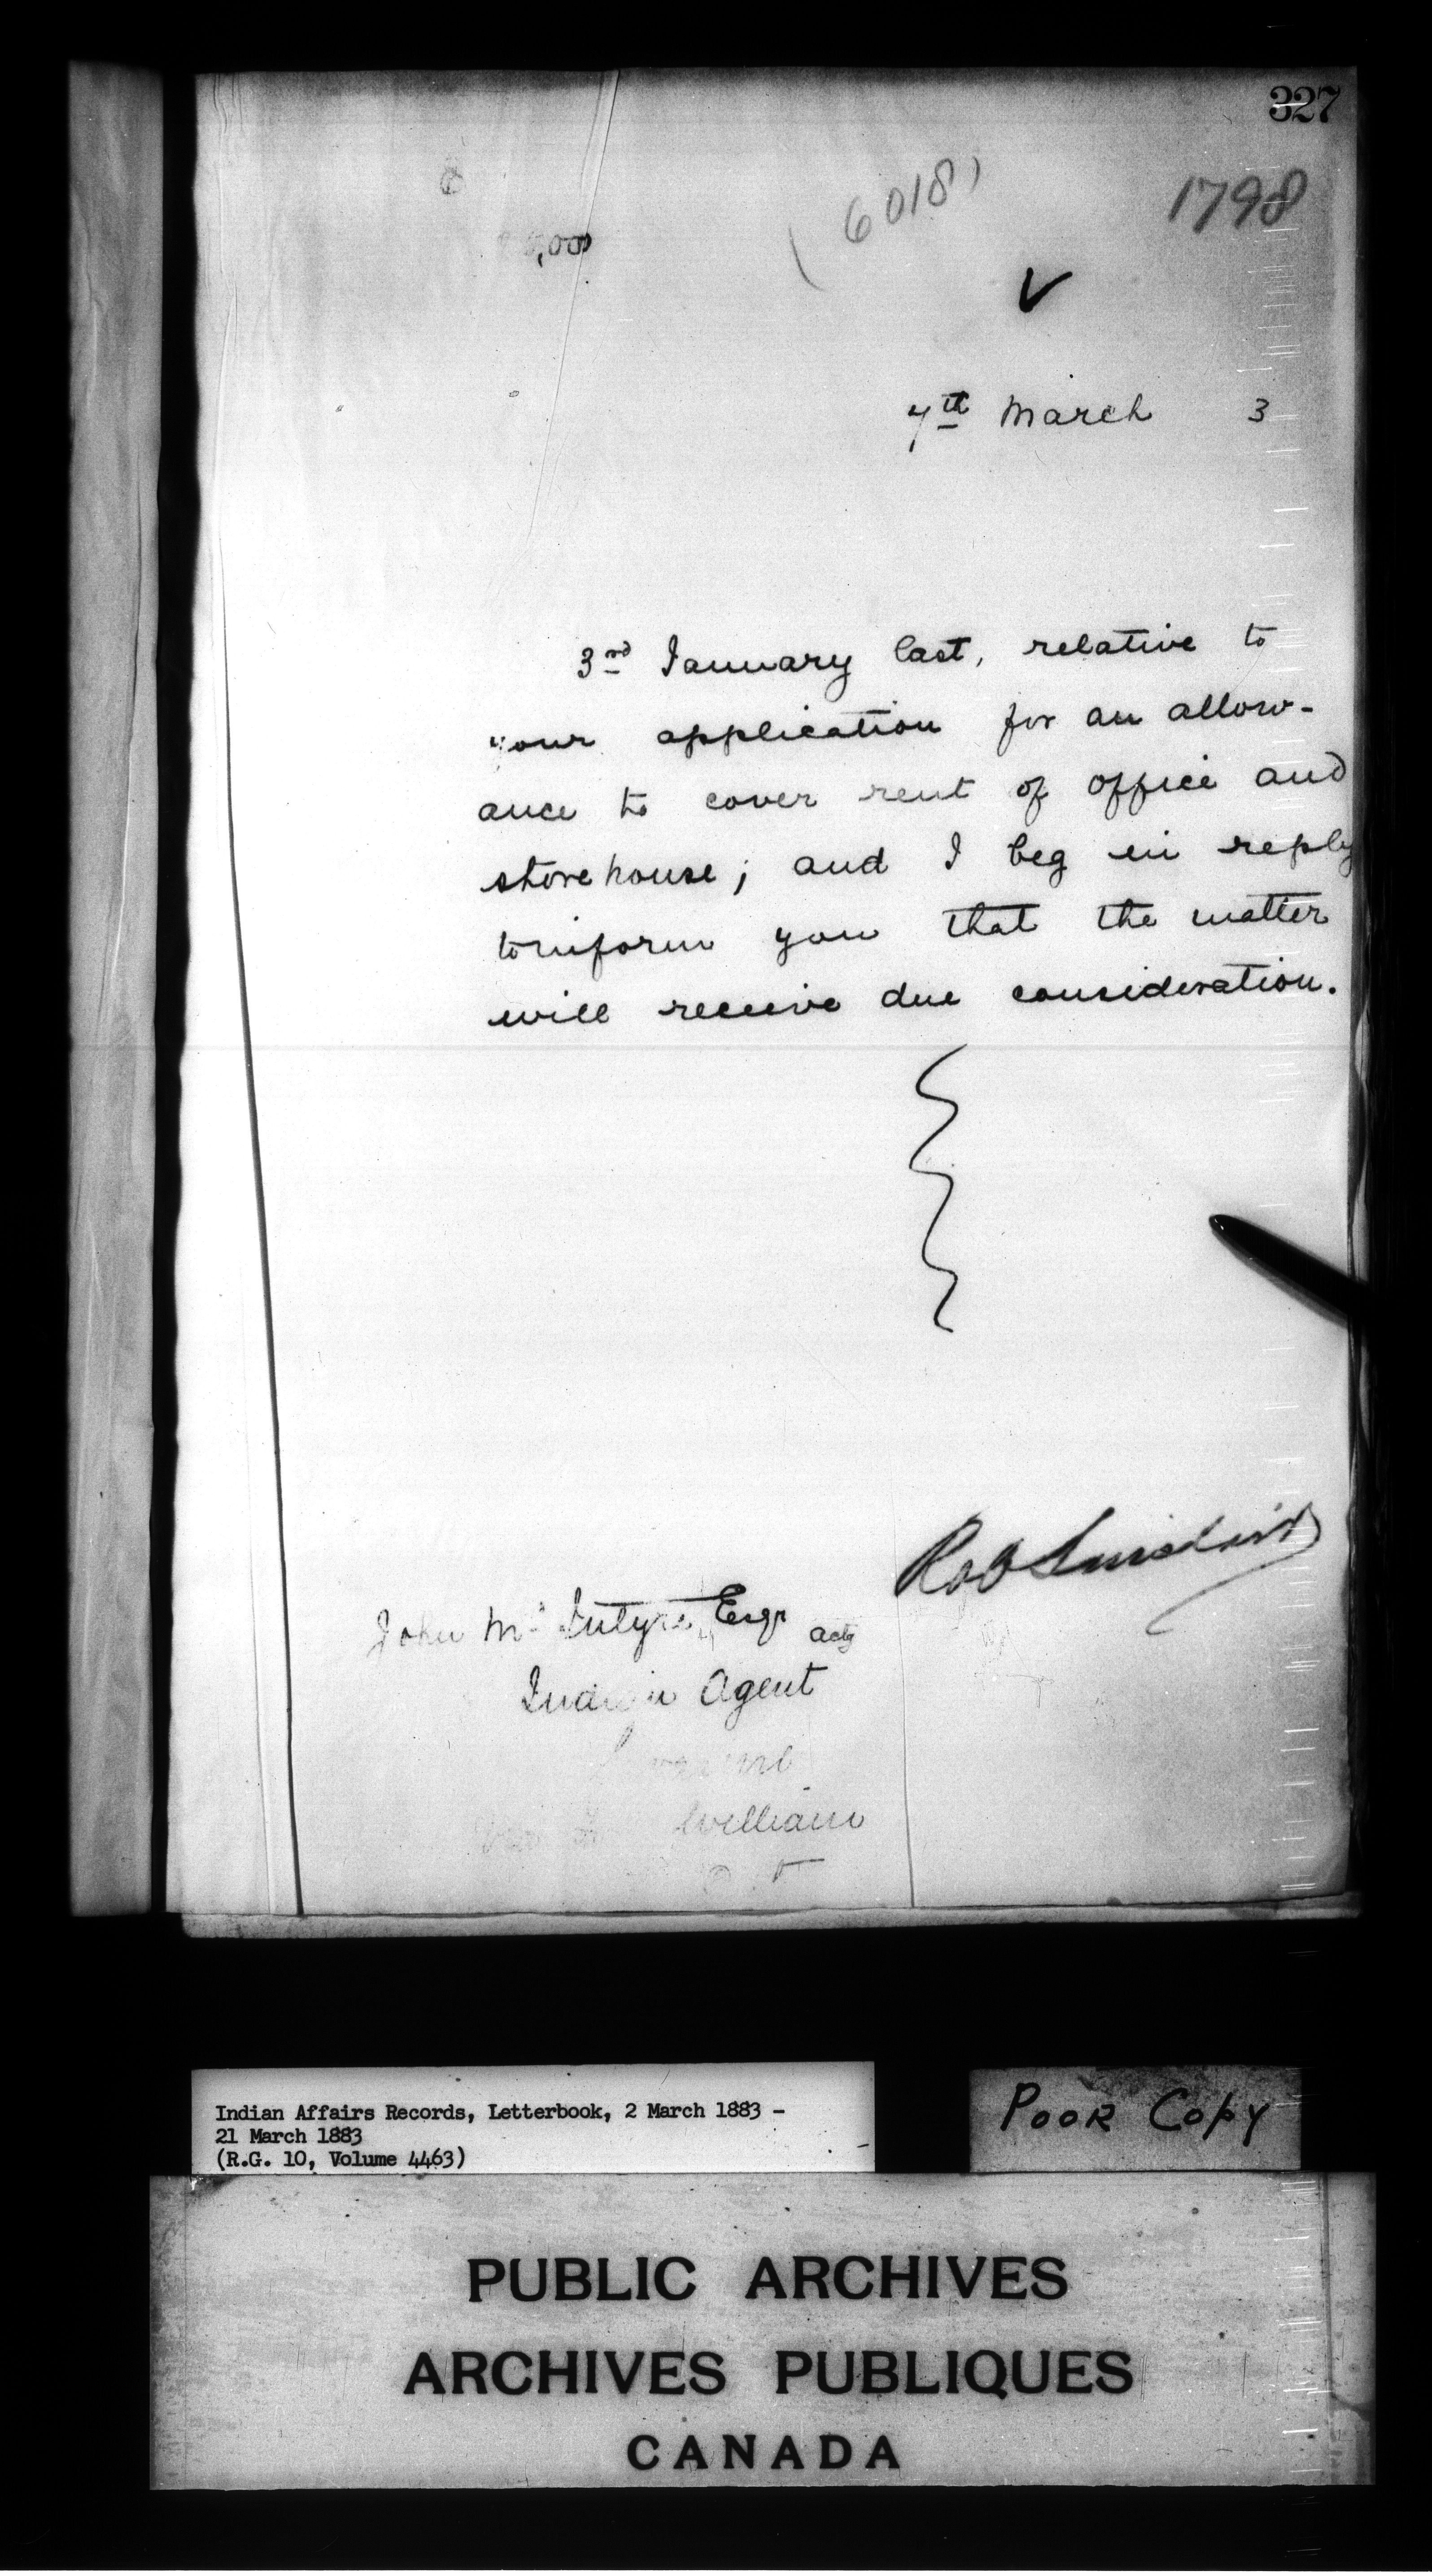 327
(6018)
1798
,00
✓
7th March 3
3rd January last, relative to
your application for an allow-
ance to cover rent of office and
storehouse; and I beg in reply
to inform you that the matter
will receive due consideration.
Rob Sinclair
John McIntyre, Esqr actg
Indian Agent
William
Indian Affairs Records, Letterbook, 2 March 1883 -
21 March 1883
(R.G. 10, Volume 4463)
POOR COPY
PUBLIC ARCHIVES
ARCHIVES PUBLIQUES
CANADA